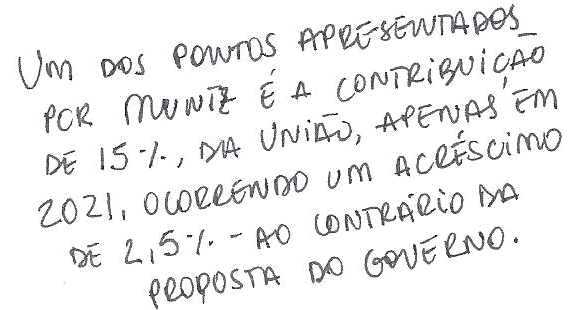 UM DOS PONTOS APRESENTADOS
POR MUNIZ É A CONTRIBUIÇÃO
DE 15%, DA UNIÃO, APENAS EM
2021, OCORRENDO UM ACRÉSCIMO
DE 2,5% - AO CONTRÁRIO DA
PROPOSTA DO GOVERNO.